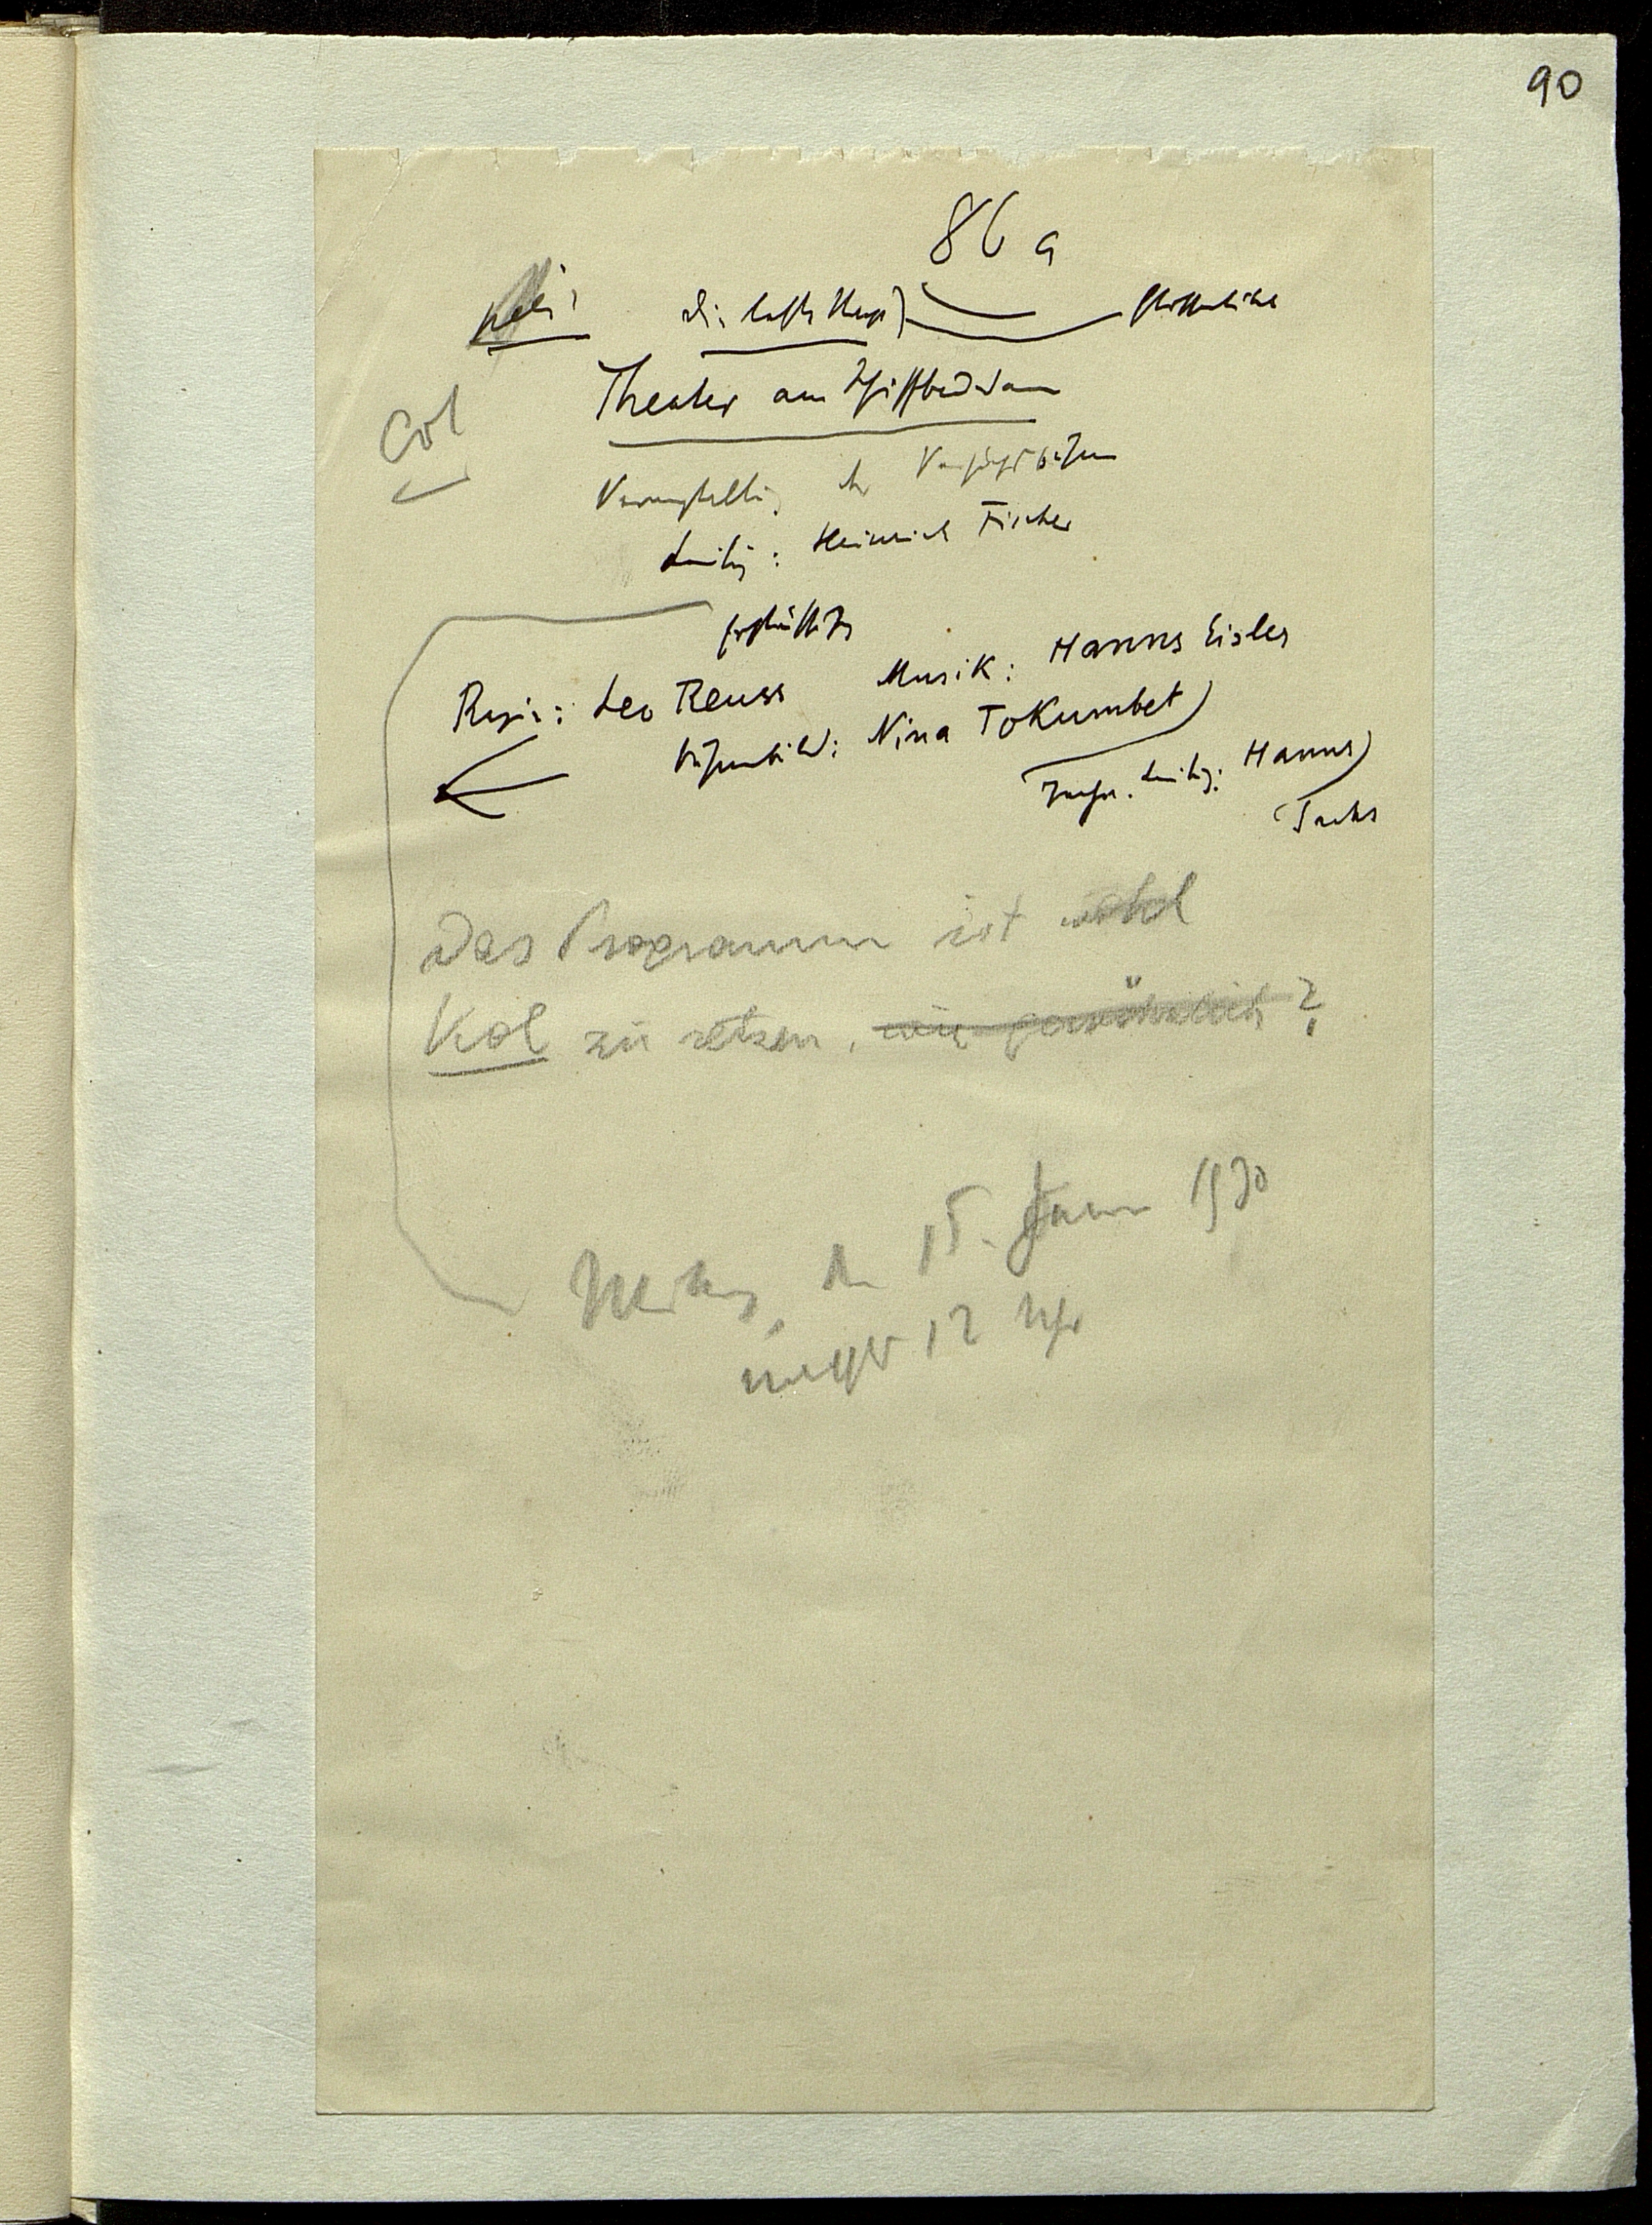 90
86 a
Die letzte Nacht
Theater am Schiffbauerdamm
Col
Veranstaltung der Versuchsbühne
Leitung: Heinrich Fischer
Regie: Leo Reuss Musik: Hanns Eisler
Bühnenbild: Nina Tokumbet
Techn. Leitung: Hanns
Sachs
Das Programm ist wohl
Kol zu setzen, wie gewöhnlich?
den 15. Januar 1930
nachts 12 Uhr